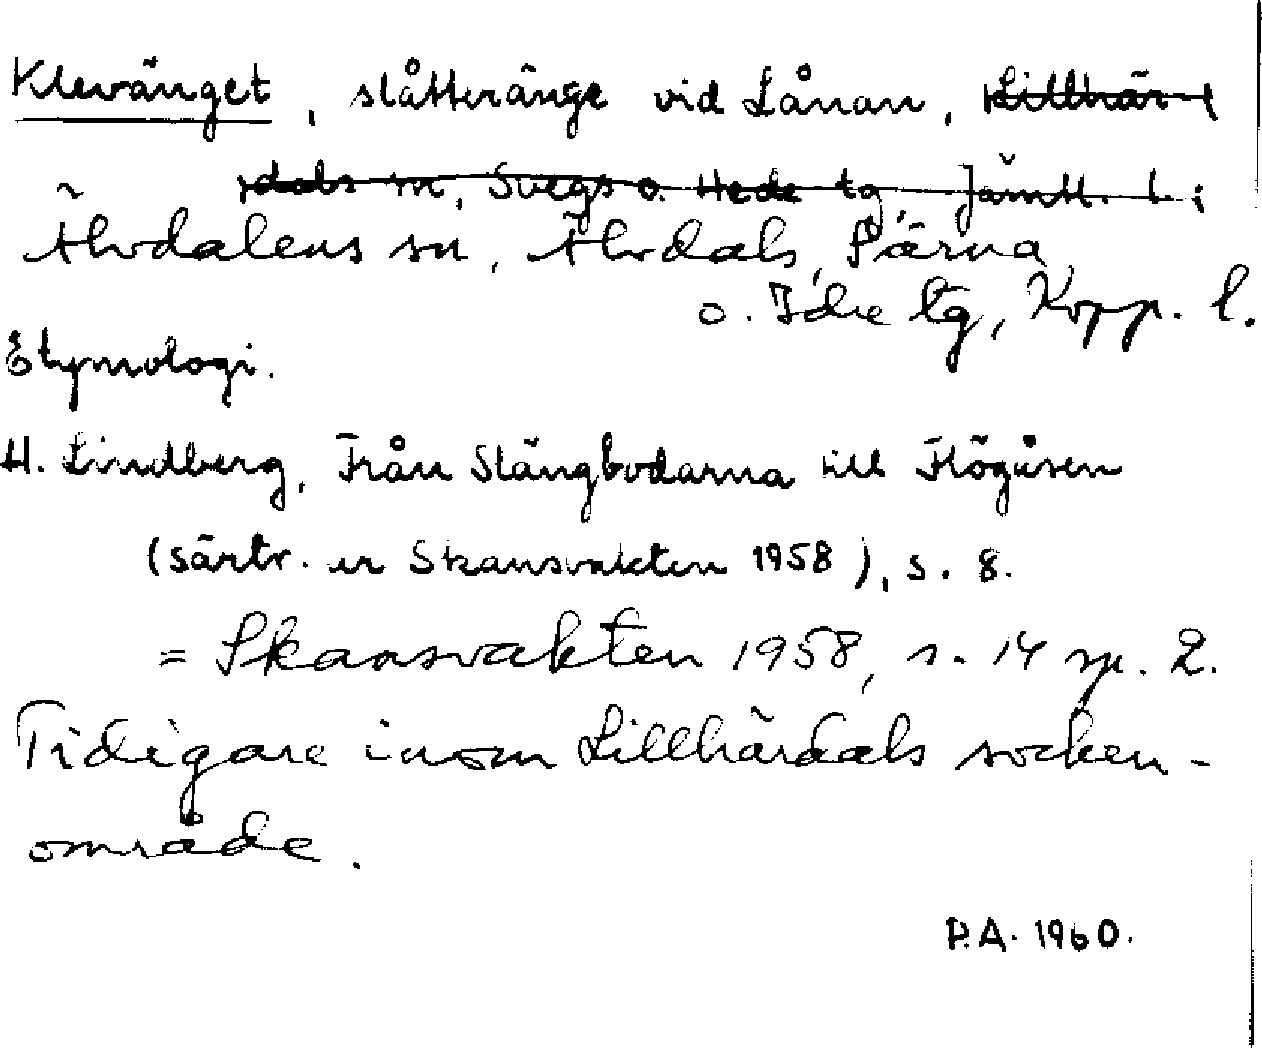 Klevänget, slåtteränge vid Lånan, Lillhär-
dals sn, Svegs o. Hede tg, Jämtl. l.;
Älvdalens sn, Älvdals, Särna
o. Idre tg, Kopp. l.
Etymologi.
H. Lindberg, Från Slängbodarna till Flögåsen
(särtr. ur Skansvakten 1958), s. 8.
= Skansvakten 1958, s. 14 sp. 2.
Tidigare inom Lillhärdals socken-
område.
P.A. 1960.